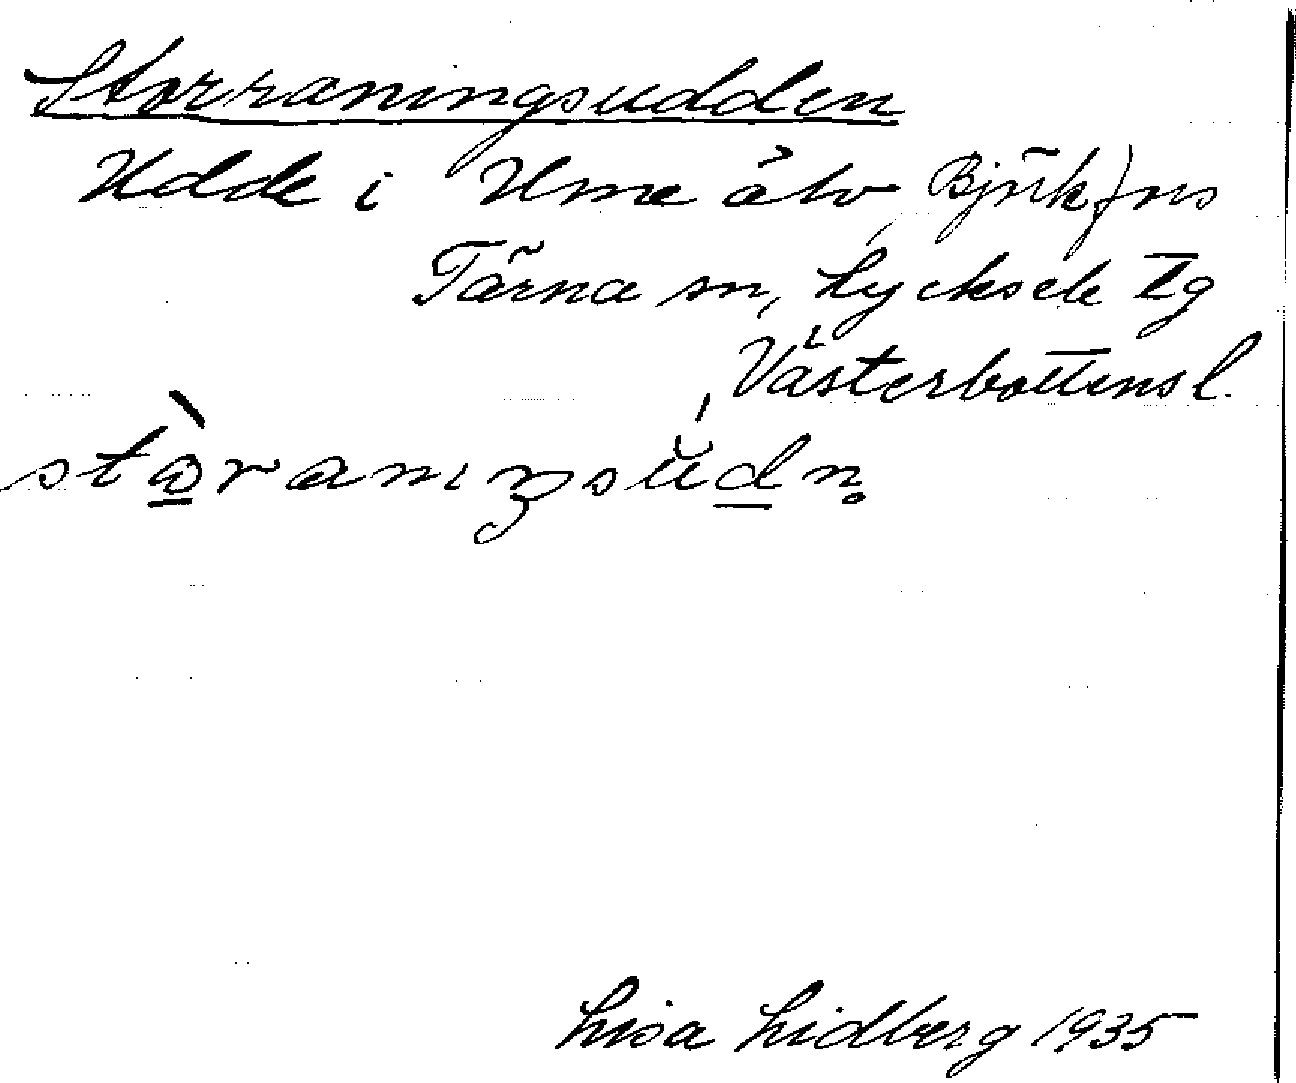 Storraningsudden
Udde i Ume älv, Björkfors
Tärna sn, Lycksele lg
Västerbottens l.
stòraniŋsúdn̥
Lisa Lidberg 1935